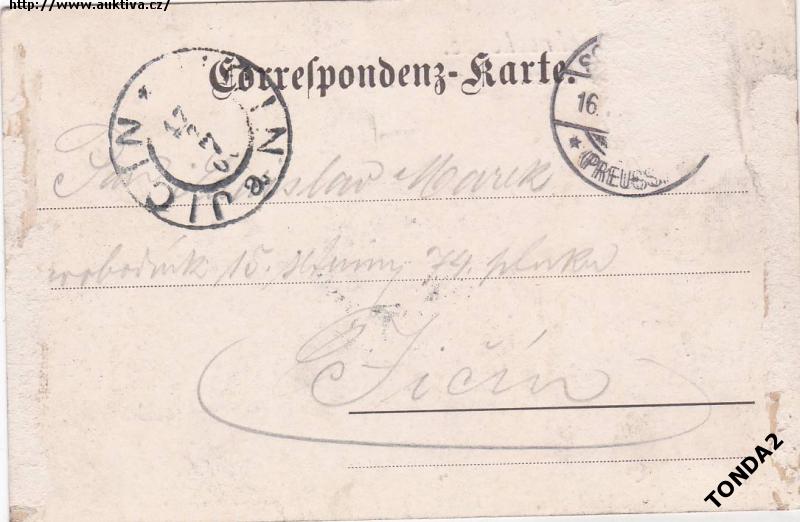 http://www.auktiva.cz/
Correspondenz-Karte.
JIČIN * JIČIN
16.
* (PREUSS.
Pan Jaroslav Marek
svobodník 15. setniny 74. pluku
Jičín
TONDA2